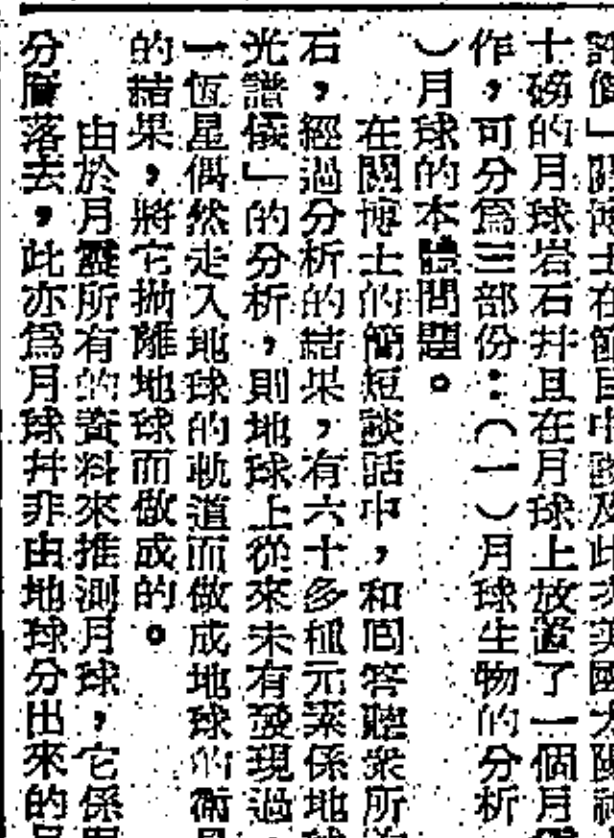 十磅的月球岩石幷且在月球上放置了一個月
作，可分爲三部份：（一）月球生物的分析
）月球的本體問題。
在關博士的簡短談話中，和回答聽衆所
石，經過分析的結果，有六十多種元素係地
光譜儀」的分析，則地球上從來未有發現過
一恆星偶然走入地球的軌道而做成地球的衞
的結果，將它拋離地球而做成的。
由於月震所有的資料來推測月球，它係
分層落去，此亦爲月球幷非由地球分出來的